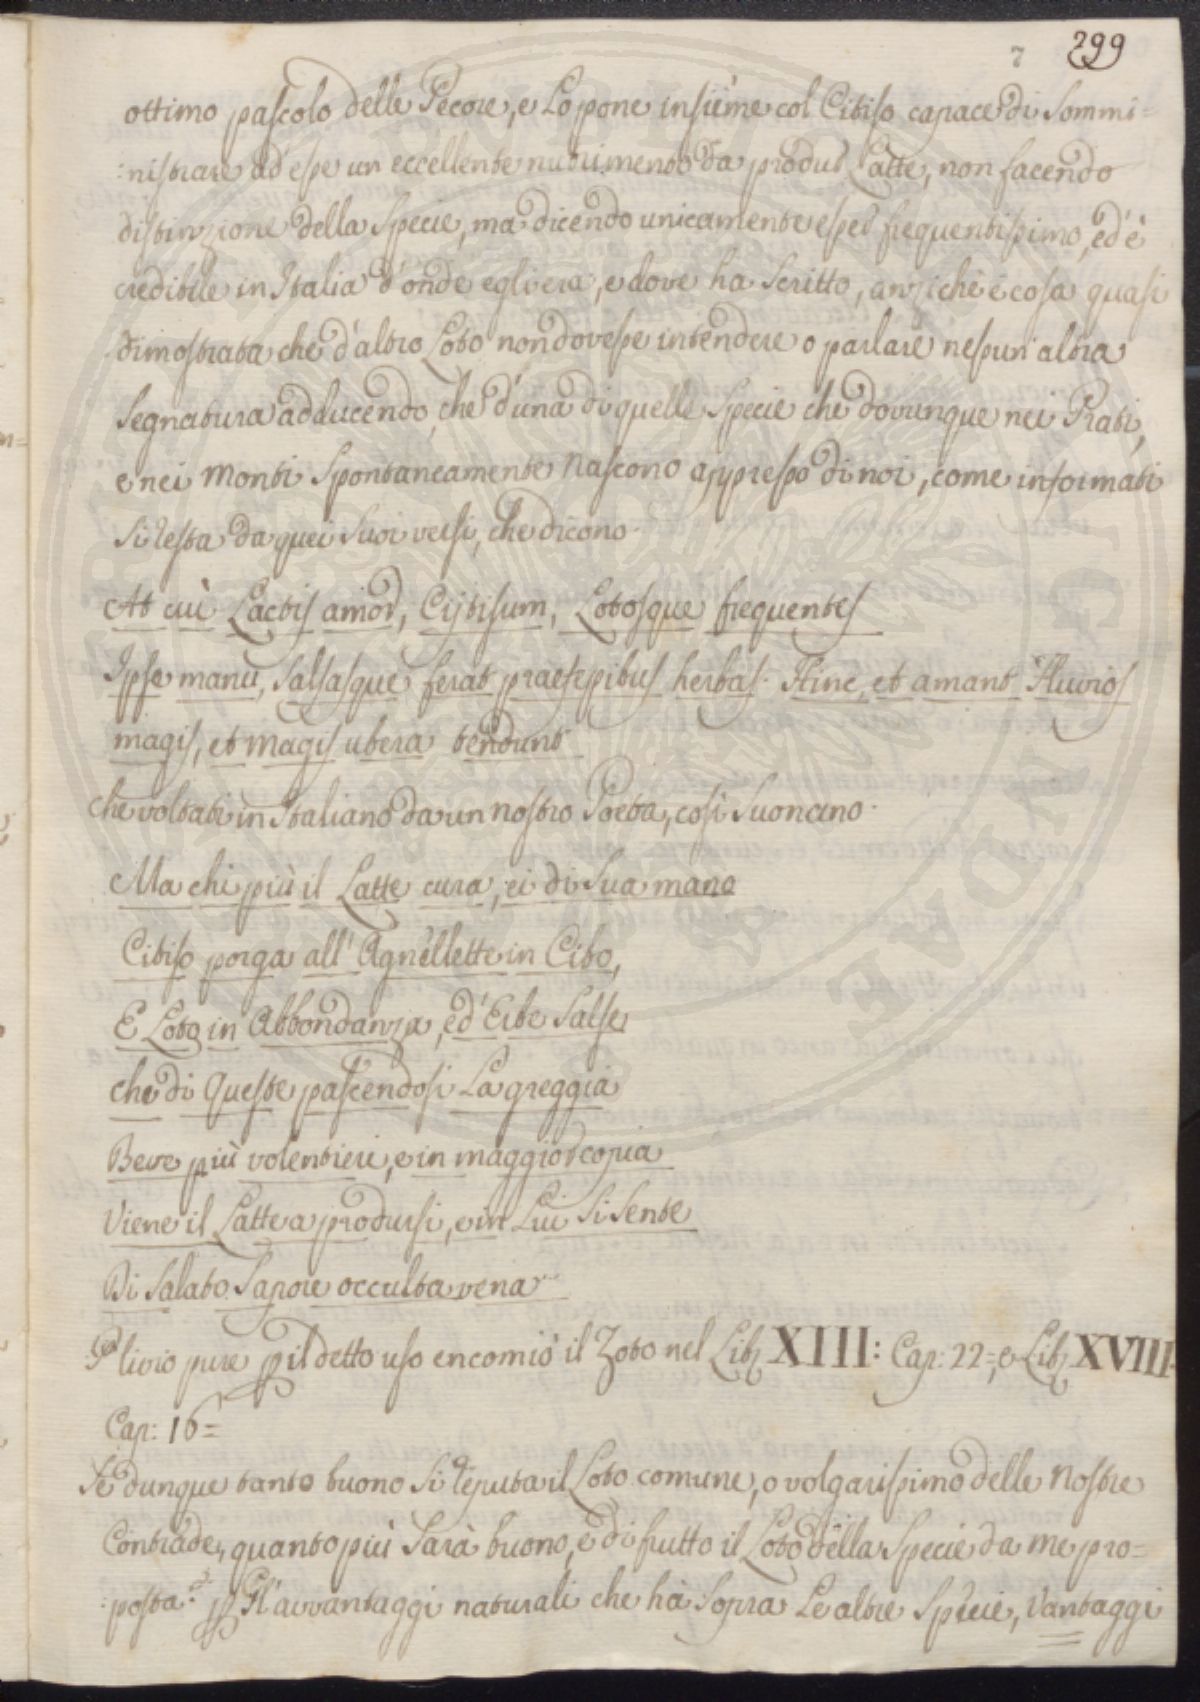 7 299
ottimo pascolo delle Pecore, e Lo pone insième col Citiso capace di Sommi=
:nistrare ad esse un eccellente nutrimento da produr Latte, non facendo
distinzione della Specie, ma dicendo unicamente esser frequentissimo, ed è
credibile in Italia d'onde egli era, e dove ha Scritto, anziché è cosa quasi
dimostrata che d'altro Loto non dovesse intendere o parlare nessun'altra
Segnatura adducendo, che d'una di quelle Specie che dovunque nei Prati,
e nei Monti Spontaneamente Nascono appresso di noi, come informati
Si resta da quei Suoi versi, che dicono.
At cui Lactis amor, Cÿtisum, Lotosque frequentes
Ipse manu, Salsasque ferat praesepibus herbas. Hinc, et amant Fluvios
magis, et magis ubera tendunt
che voltati in Italiano da un nostro Poeta, così Suonano.
Ma chi più il Latte cura, ei di Sua mano
Citiso porga all'Agnellette in Cibo,
E Loto in Abbondanza, ed'Erbe Salse
che di Queste pascendosi La greggia
Beve più volentieri, e in maggior copia
Viene il Latte a prodursi, e in Lui Si Sente
Di Salato Sapore occulta vena
Plinio pure p il detto uso encomiò il Loto nel Lib XIII: Cap: 22=, e Lib XVIII.
Cap: 16=
Se dunque tanto buono Si reputa il Loto comune, o volgarissimo delle Nostre
Contrade, quanto più Sarà buono, e di frutto il Loto della Specie da me pro=
:posta? p Gl'avvantaggi naturali che hà Sopra Le altre Specie, Vantaggi